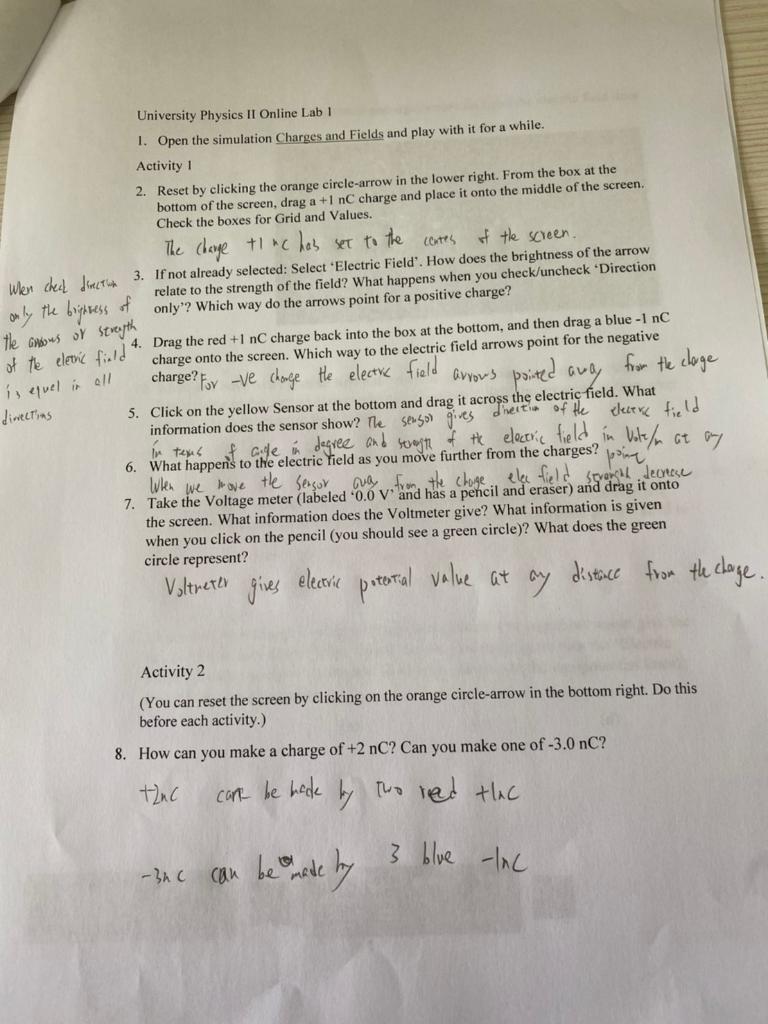 University Physics II Online Lab 1
1. Open the simulation Charges and Fields and play with it for a while.
Activity 1
2. Reset by clicking the orange circle-arrow in the lower right. From the box at the
bottom of the screen, drag a +1 nC charge and place it onto the middle of the screen.
Check the boxes for Grid and Values.
The charge +1 nc has set to the of the screen.
3. If not already selected: Select 'Electric Field'. How does the brightness of the arrow
relate to the strength of the field? What happens when you check/uncheck 'Direction
only'? Which way do the arrows point for a positive charge?
When check direction
only the brightness of
the arrows or strength
of the eletric field
is equel in all
directions
4. Drag the red +1 nC charge back into the box at the bottom, and then drag a blue -1 nC
charge onto the screen. Which way to the electric field arrows point for the negative
charge? For -ve charge the electric field arrows pointed away from the charge
5. Click on the yellow Sensor at the bottom and drag it across the electric field. What
information does the sensor show? The sensor gives direction of the electric field
in terms of angle in degree and strength of the electric field in Volt/m at any
point
6. What happens to the electric field as you move further from the charges?
When we move the sensor away from the charge elec field decrease
7. Take the Voltage meter (labeled '0.0 V' and has a pencil and eraser) and drag it onto
the screen. What information does the Voltmeter give? What information is given
when you click on the pencil (you should see a green circle)? What does the green
circle represent?
Voltmeter gives electric potential value at any distance from the charge.
Activity 2
(You can reset the screen by clicking on the orange circle-arrow in the bottom right. Do this
before each activity.)
8. How can you make a charge of +2 nC? Can you make one of -3.0 nC?
+2nC can be made by two red +1nC
-3nc can be made by 3 blue -1nC